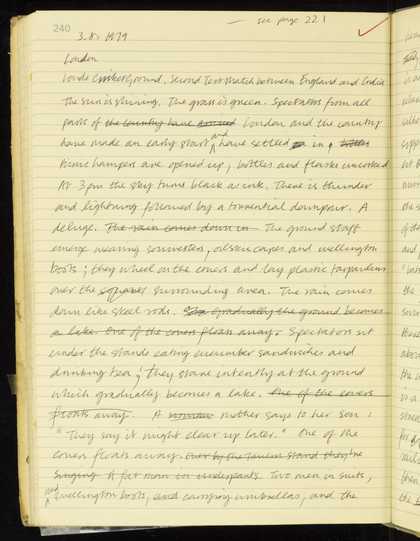 — see page 221
240
3.8.1979
London
Lords Cricket Ground. Second Test Match between England and India
The sun is shining. The grass is green. Spectators from all
parts of the country have arrived London and the country
have made an early start and have settled in.
Picnic hampers are opened up, bottles and flasks uncorked
At 3pm the sky turns black as ink. There is thunder
and lightning followed by a torrential downpour. A
deluge. The rain comes down in The ground staff
emerge wearing souwesters, oilskin capes and wellington
boots; they wheel on the covers and lay plastic tarpaulins
over the squares surrounding area. The rain comes
down like steel rods. Gradually the ground becomes
a lake. One of the covers floats away. Spectators sit
under the stands eating cucumber sandwiches and
drinking tea; they stare intently at the ground
which gradually becomes a lake. One of the covers
floats away. A woman mother says to her son:
"They say it might clear up later." One of the
covers floats away. Over by the Tavern stand they're
singing. A fat man in underpants. Two men in suits,
and wellington boots, and carrying umbrellas, and the